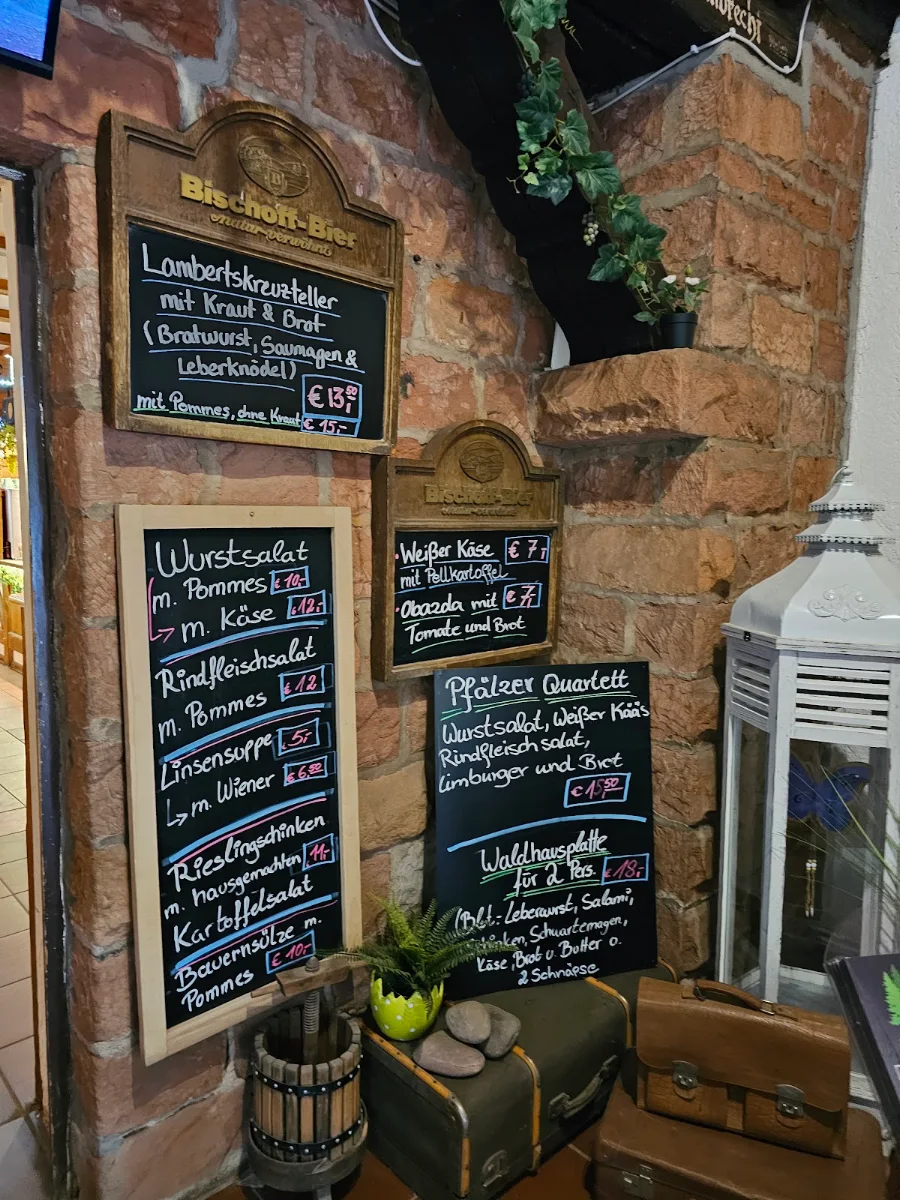 Bischoff-Bier
natur-verwöhnt
Lambertskreuzteller
mit Kraut & Brot
(Bratwurst, Saumagen &
Leberknödel)
€ 13,50
mit Pommes, ohne Kraut € 15,-
Bischoff-Bier
• Weißer Käse € 7,-
mit Pellkartoffel
• Obazda mit € 7,-
Tomate und Brot
Wurstsalat
m. Pommes € 10,-
→ m. Käse € 12,-
Rindfleischsalat
m. Pommes € 12
Linsensuppe € 5,-
↳ m. Wiener € 6,50
Rieslingschinken
m. hausgemachten 11,-
Kartoffelsalat
Bauernsülze m.
Pommes € 10,-
Pfälzer Quartett
Wurstsalat, Weißer Kääs
Rindfleischsalat,
Limburger und Brot
€ 15,50
Waldhausplatte
für 2 Pers. € 18,-
(Blut.- Leberwurst, Salami,
Schinken, Schwartemagen,
Käse, Brot u. Butter o.
2 Schnäpse